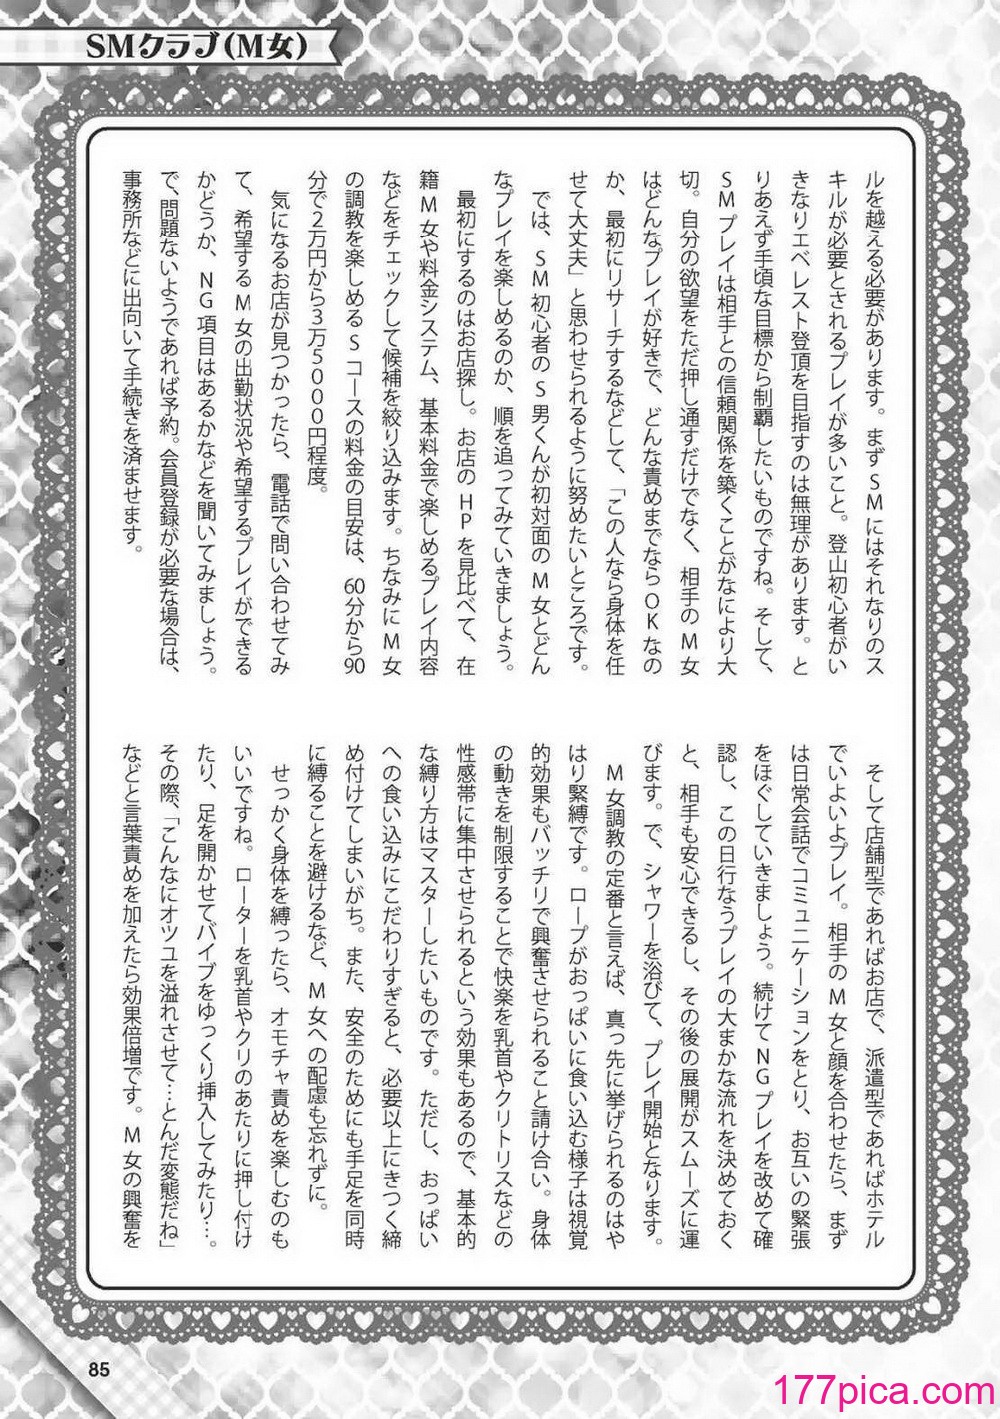 SMクラブ(M女)
ルを越える必要があります。まずSMにはそれなりのス
キルが必要とされるプレイが多いこと。登山初心者がい
きなりエベレスト登頂を目指すのは無理があります。と
りあえず手頃な目標から制覇したいものですね。そして、
SMプレイは相手との信頼関係を築くことがなにより大
切。自分の欲望をただ押し通すだけでなく、相手のM女
はどんなプレイが好きで、どんな責めまでならOKなの
か、最初にリサーチするなどして、「この人なら身体を任
せて大丈夫」と思わせられるように努めたいところです。
では、SM初心者のS男くんが初対面のM女とどん
なプレイを楽しめるのか、順を追ってみていきましょう。
最初にするのはお店探し。お店のHPを見比べて、在
籍M女や料金システム、基本料金で楽しめるプレイ内容
などをチェックして候補を絞り込みます。ちなみにM女
の調教を楽しめるSコースの料金の目安は、60分から90
分で2万円から3万5000円程度。
気になるお店が見つかったら、電話で問い合わせてみ
て、希望するM女の出勤状況や希望するプレイができる
かどうか、NG項目はあるかなどを聞いてみましょう。
で、問題ないようであれば予約。会員登録が必要な場合は、
事務所などに出向いて手続きを済ませます。
そして店舗型であればお店で、派遣型であればホテル
でいよいよプレイ。相手のM女と顔を合わせたら、まず
は日常会話でコミュニケーションをとり、お互いの緊張
をほぐしていきましょう。続けてNGプレイを改めて確
認し、この日行なうプレイの大まかな流れを決めておく
と、相手も安心できるし、その後の展開がスムーズに運
びます。で、シャワーを浴びて、プレイ開始となります。
M女調教の定番と言えば、真っ先に挙げられるのはや
はり緊縛です。ロープがおっぱいに食い込む様子は視覚
的効果もバッチリで興奮させられること請け合い。身体
の動きを制限することで快楽を乳首やクリトリスなどの
性感帯に集中させられるという効果もあるので、基本的
な縛り方はマスターしたいものです。ただし、おっぱい
への食い込みにこだわりすぎると、必要以上にきつく締
め付けてしまいがち。また、安全のためにも手足を同時
に縛ることを避けるなど、M女への配慮も忘れずに。
せっかく身体を縛ったら、オモチャ責めを楽しむのも
いいですね。ローターを乳首やクリのあたりに押し付け
たり、足を開かせてバイブをゆっくり挿入してみたり…。
その際、「こんなにオツユを溢れさせて…とんだ変態だね」
などと言葉責めを加えたら効果倍増です。M女の興奮を
85
177pica.com